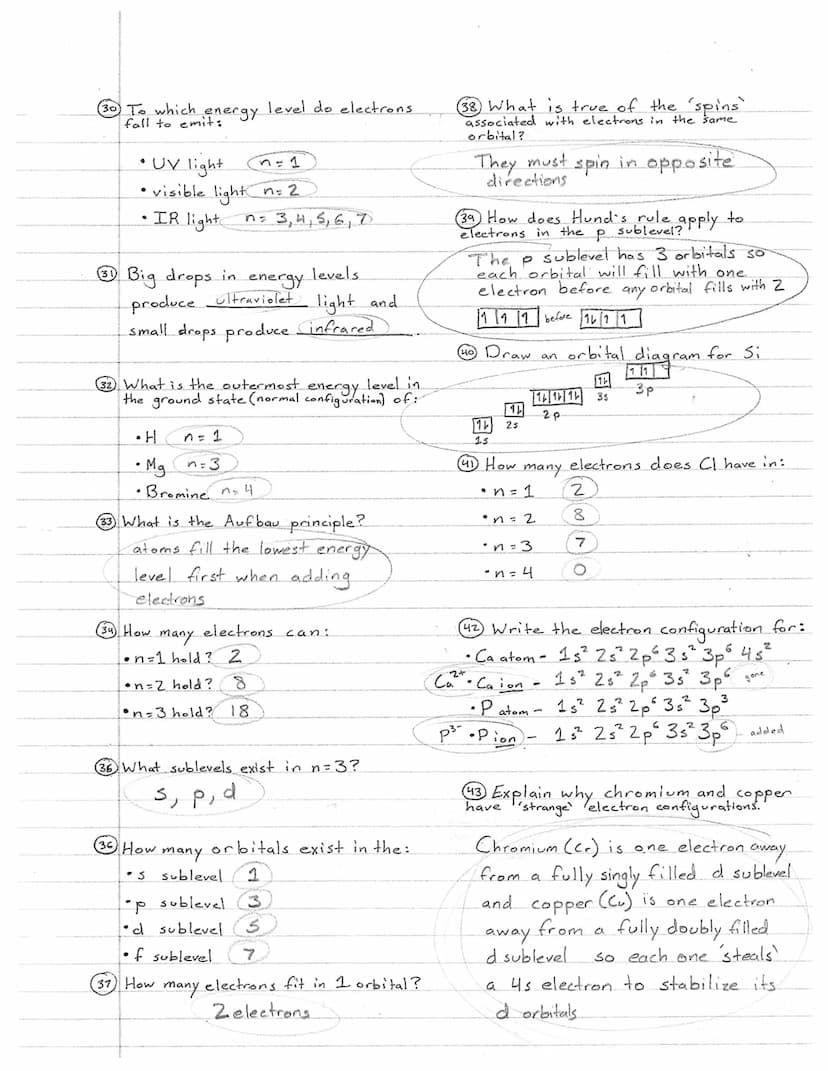 30 To which energy level do electrons
fall to emit:
• UV light n=1
• visible light n=2
• IR light n=3,4,5,6,7
31 Big drops in energy levels
produce ultraviolet light and
small drops produce infrared.
32 What is the outermost energy level in
the ground state (normal configuration) of:
• H n=1
• Mg n=3
• Bromine n=4
33 What is the Aufbau principle?
atoms fill the lowest energy
level first when adding
electrons
34 How many electrons can:
• n=1 hold? 2
• n=2 hold? 8
• n=3 hold? 18
36 What sublevels exist in n=3?
s, p, d
36 How many orbitals exist in the:
• s sublevel 1
• p sublevel 3
• d sublevel 5
• f sublevel 7
37 How many electrons fit in 1 orbital?
2 electrons
38 What is true of the 'spins'
associated with electrons in the same
orbital?
They must spin in opposite
directions
39 How does Hund's rule apply to
electrons in the p sublevel?
The p sublevel has 3 orbitals so
each orbital will fill with one
electron before any orbital fills with 2
↿ ↿ ↿ before ↿⇂ ↿ ↿
40 Draw an orbital diagram for Si
↿⇂ 1s
↿⇂ 2s
↿⇂ ↿⇂ ↿⇂ 2p
↿⇂ 3s
↿ ↿ 3p
41 How many electrons does Cl have in:
• n=1 2
• n=2 8
• n=3 7
• n=4 0
42 Write the electron configuration for:
• Ca atom - 1s² 2s² 2p⁶ 3s² 3p⁶ 4s²
Ca²⁺ • Ca ion - 1s² 2s² 2p⁶ 3s² 3p⁶ gone
• P atom - 1s² 2s² 2p⁶ 3s² 3p³
P³⁻ • P ion - 1s² 2s² 2p⁶ 3s² 3p⁶ - added
43 Explain why chromium and copper
have 'strange' electron configurations.
Chromium (Cr) is one electron away
from a fully singly filled d sublevel
and copper (Cu) is one electron
away from a fully doubly filled
d sublevel so each one 'steals'
a 4s electron to stabilize its
d orbitals